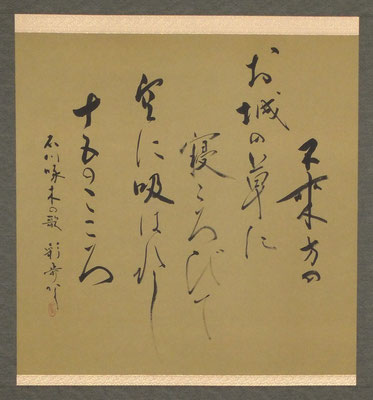 不来方の
お城の草に
寝ころびて
空に吸はれし
十五のこころ
石川啄木の歌 彩